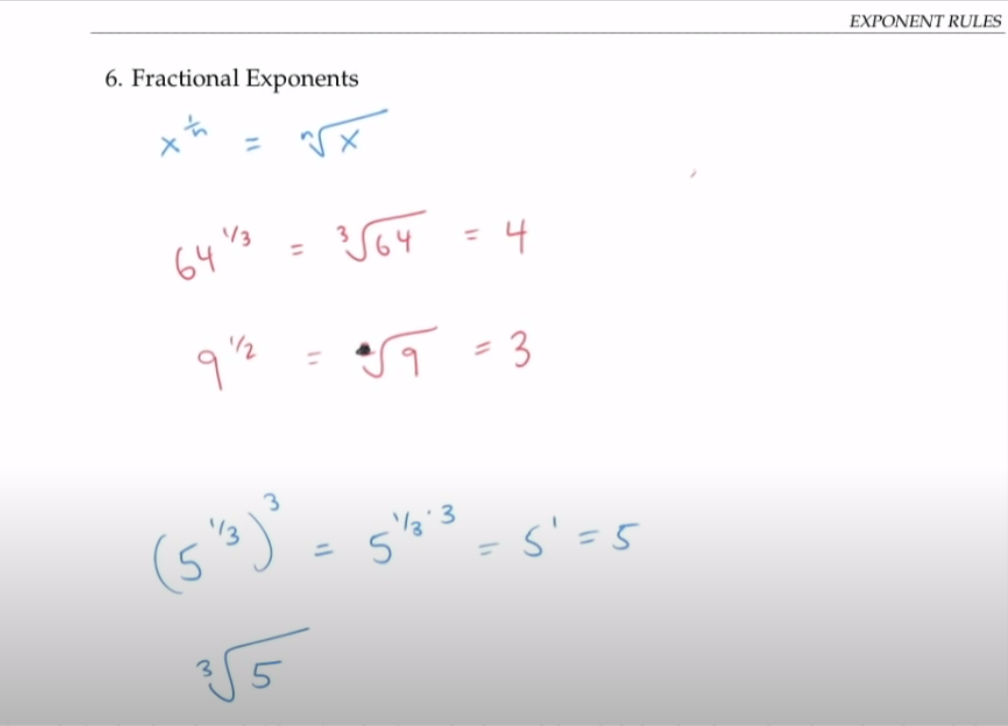 EXPONENT RULES
6. Fractional Exponents
x^{1/n} = ⁿ√x
64^{1/3} = ³√64 = 4
9^{1/2} = √9 = 3
(5^{1/3})^3 = 5^{1/3·3} = 5^1 = 5
³√5